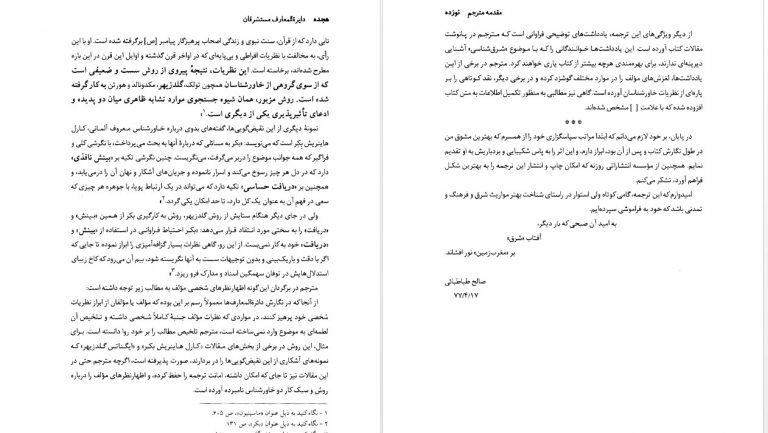 هجده    دایرةالمعارف مستشرقان
نابی دارد که از قرآن، سنت نبوی و زندگی اصحاب پرهیزگار پیامبر [ص] برگرفته شده است. او با این
رأی، به مخالفت با نظریات افراطی و بی‌پایه‌ای که در اواخر قرن گذشته و اوایل این قرن در این باره
مطرح شده‌اند، برخاسته است. این نظریات، نتیجهٔ پیروی از روش سست و ضعیفی است
که از سوی گروهی از خاورشناسان همچون نولدکه، گلدزیهر، مکدونالد و هورتن به کار گرفته
شده است. روش مزبور، همان شیوه جستجوی موارد تشابه ظاهری میان دو پدیده و
ادعای تأثیرپذیری یکی از دیگری است.۱
نمونهٔ دیگری از این نقیض‌گویی‌ها، گفته‌های بدوی درباره خاورشناس معروف آلمانی، کارل
هاینریش بکر است که می‌نویسد: «بکر به مسائلی که دربارهٔ آنها به بحث می‌پرداخت، با نگرشی کلی و
فراگیر که همه جوانب موضوع را در برمی‌گرفت، می‌نگریست. چنین نگرشی تکیه بر «بینش نافذی»
دارد که در دل هر چیز رسوخ می‌کند و اسرار نانموده و جریان‌های آشکار و نهان آن را درمی‌یابد، و
همچنین بر «دریافت حساسی» تکیه دارد که می‌تواند در یک ارتباط پویا، با جوهره هر چیزی که
سعی در فهم آن به عنوان یک کل دارد، تا حد امکان یکی گردد.»۲
ولی در جای دیگر هنگام ستایش از روش گلدزیهر، روش به کارگیری بکر از همین «بینش» و
«دریافت» را به سختی مورد انتقاد قرار می‌دهد: «بکر احتیاط فراوانی در استفاده از «بینش و
دریافت» خود به کار نمی‌بست. از این رو، گاهی نظرات بسیار گزافه‌آمیزی را ابراز نموده تا جایی که
اگر با دقت و باریک‌بینی و بدون توجیهات سست به آنها نگریسته شود، بیم آن می‌رود که کاخ زیبای
استدلال‌هایش در توفان سهمگین اسناد و مدارک فرو ریزد.»۳
مترجم در برگردان این گونه اظهارنظرهای شخصی مؤلف به مطالب زیر توجه داشته است:
از آنجا که در نگارش دایرةالمعارف‌ها معمولاً رسم بر این بوده که مؤلف یا مؤلفان از ابراز نظریات
شخصی خود پرهیز کنند، در مواردی که نظرات مؤلف جنبهٔ کاملاً شخصی داشته و تلخیص آن
لطمه‌ای به موضوع وارد نمی‌ساخته است، مترجم تلخیص مطالب را بر خود روا دانسته است. برای
مثال، این روش در برخی از بخش‌های مقالات «کارل هاینریش بکر» و «ایگناتس گلدزیهر» که
نمونه‌های آشکاری از این نقیض‌گویی‌ها را در بردارند، صورت پذیرفته است، اگرچه مترجم حتی در
این مقالات نیز تا جای که امکان داشته، امانت ترجمه را حفظ کرده، و اظهارنظرهای مؤلف را درباره
روش و سبک کار دو خاورشناس نامبرده آورده است.
۱ - نگاه کنید به ذیل عنوان «ماسینیون»، ص ۶۰۵.
۲ - نگاه کنید به ذیل عنوان «بکر»، ص ۱۳۱.
مقدمه مترجم    نوزده
از دیگر ویژگی‌های این ترجمه، یادداشت‌های توضیحی فراوانی است که مترجم در پانوشت
مقالات کتاب آورده است. این یادداشت‌ها خوانندگانی را که با موضوع «شرق‌شناسی» آشنایی
دیرینه‌ای ندارند، برای بهره‌مندی هرچه بیشتر از کتاب یاری خواهند کرد. مترجم در برخی از این
یادداشت‌ها، لغزش‌های مؤلف را در موارد مختلف گوشزد کرده و در برخی دیگر، نقد کوتاهی را بر
پاره‌ای از نظریات خاورشناسان آورده است. گاهی نیز مطالبی به منظور تکمیل اطلاعات به متن کتاب
افزوده شده که با علامت [ ] مشخص شده‌اند.
* * *
در پایان، بر خود لازم می‌دانم که ابتدا مراتب سپاسگزاری خود را از همسرم که بهترین مشوق من
در طول نگارش کتاب و پس از آن بود، ابراز دارم، و این اثر را به پاس شکیبایی و بردباریش به او تقدیم
نمایم. همچنین از مؤسسه انتشاراتی روزنه که امکان چاپ و انتشار این ترجمه را به بهترین شکل
فراهم آورد، تشکر می‌کنم.
امیدوارم که این ترجمه، گامی کوتاه ولی استوار در راستای شناخت بهتر مواریث شرق و فرهنگ و
تمدنی باشد که خود به فراموشی سپرده‌ایم.
به امید آن صبحی که بار دیگر،
آفتاب «شرق»
بر «مغرب‌زمین» نور افشاند.
صالح طباطبائی
۷۷/۴/۱۷